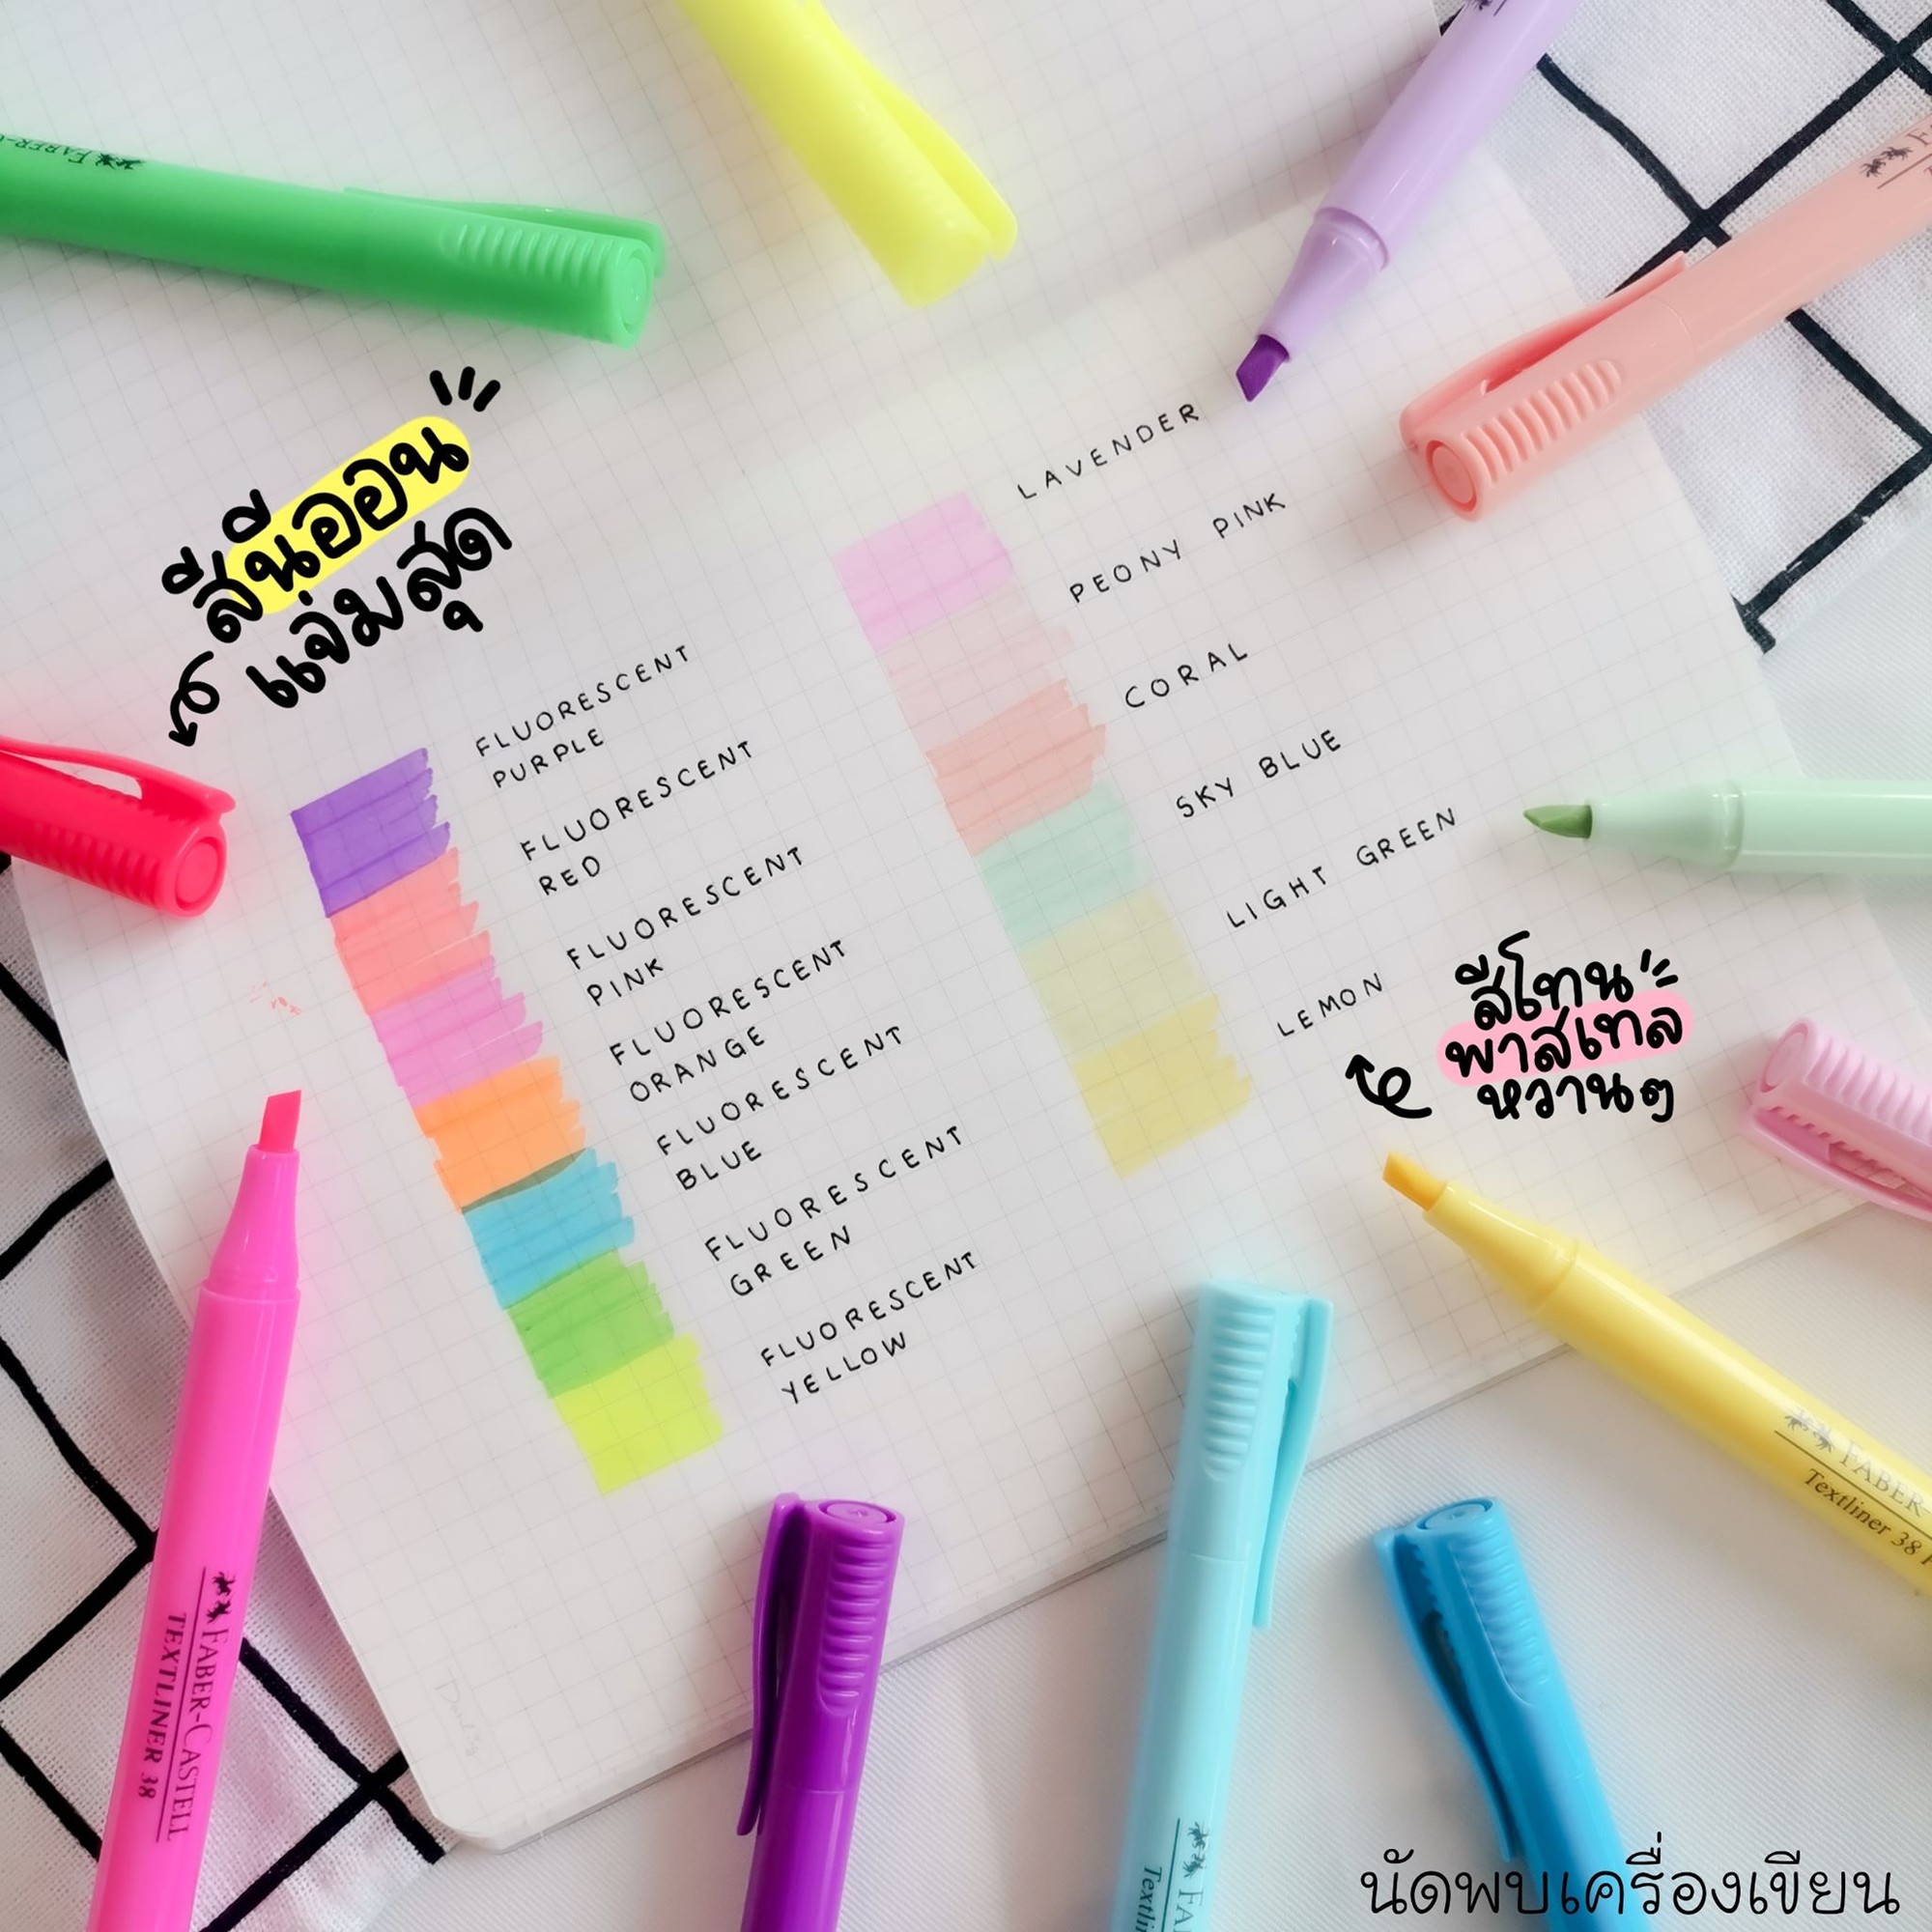 FABER-C
สีนีออน
แจ่มสุด
FLUORESCENT
PURPLE
FLUORESCENT
RED
FLUORESCENT
PINK
FLUORESCENT
ORANGE
FLUORESCENT
BLUE
FLUORESCENT
GREEN
FLUORESCENT
YELLOW
LAVENDER
PEONY PINK
CORAL
SKY BLUE
LIGHT GREEN
LEMON
สีโทน
พาสเทล
หวานๆ
FABER-CASTELL
TEXTLINER 38
FABER-
Textliner 38
FA
Textli
นัดพบเครื่องเขียน